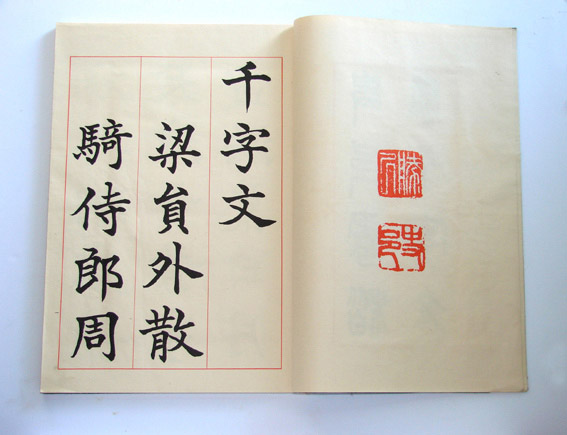 千字文
梁貟外散
騎侍郎周